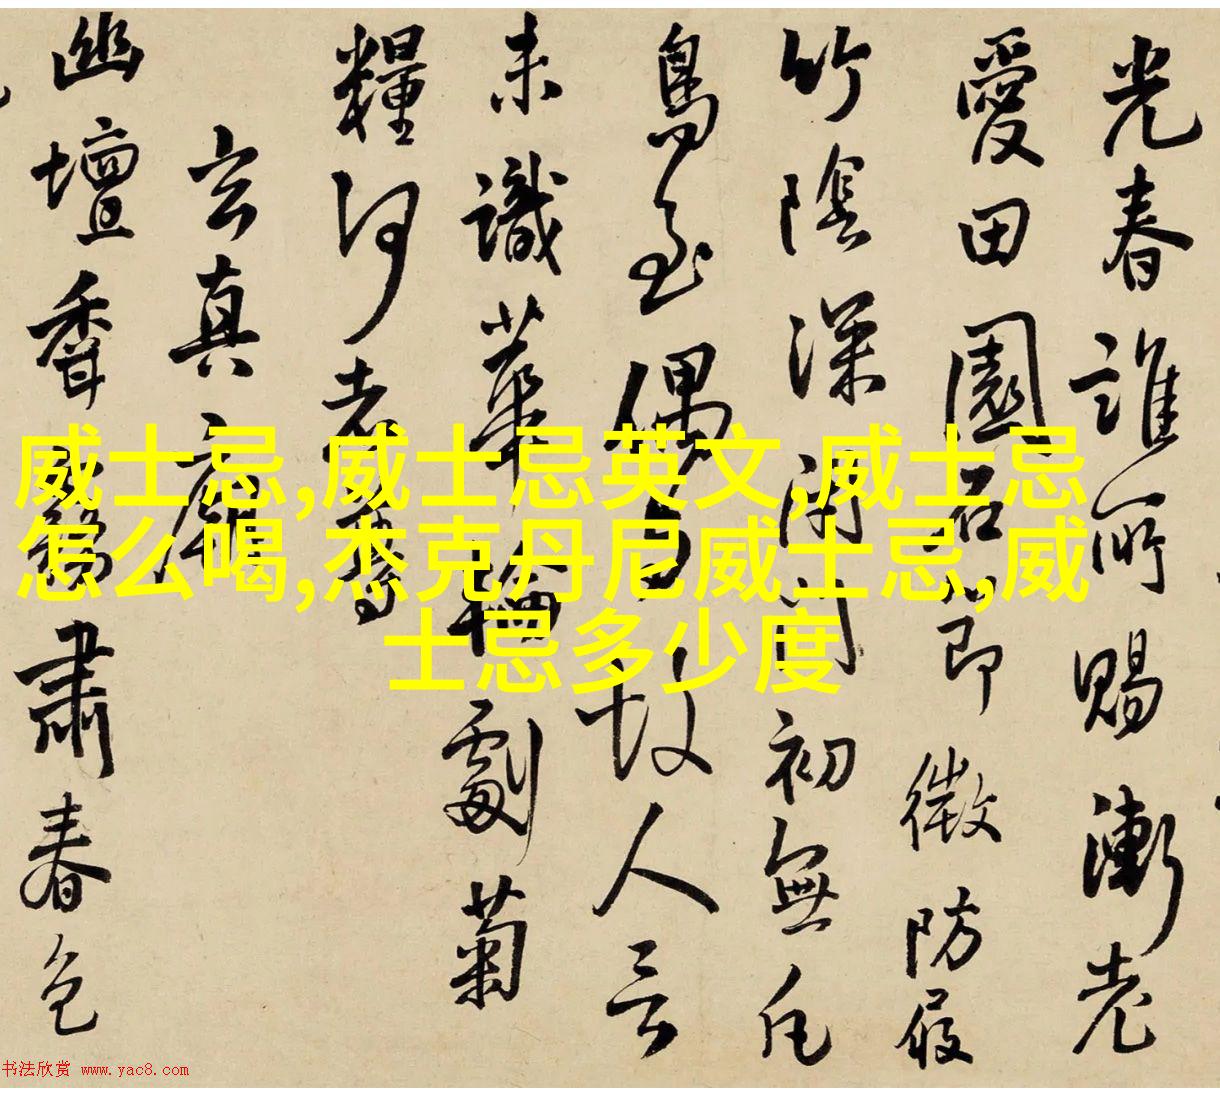 光春誰所賜漸老
愛田園石即微防屐
竹陰深閉門初無凡
鳥至偶與故人言
未識華輪劚菊
糧何老
玄真廟
幽壇香霧肅春色
威士忌,威士忌英文,威士忌
怎么喝,杰克丹尼威士忌,威
士忌多少度
书法欣赏 www.yac8.com